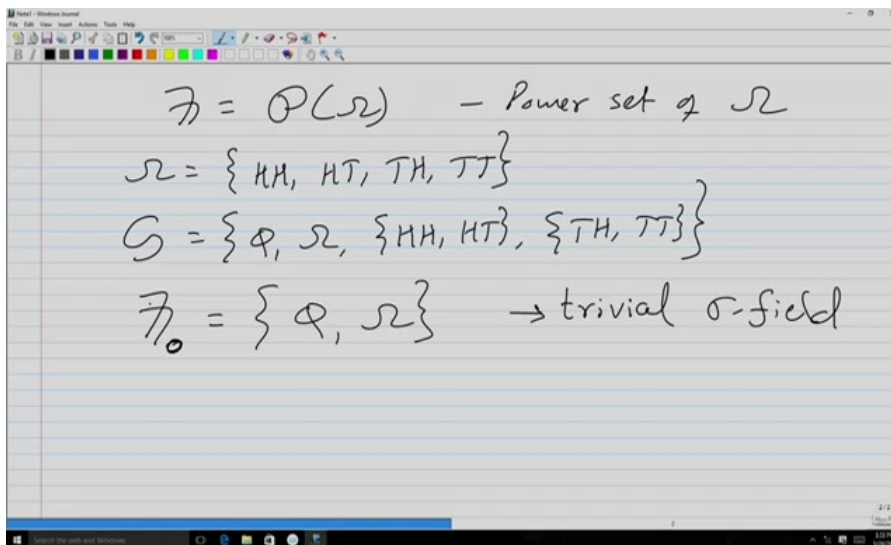 Note1 - Windows Journal
File Edit View Insert Actions Tools Help
ℱ = 𝒫(Ω) - Power set of Ω
Ω = { HH, HT, TH, TT}
G = {φ, Ω, {HH, HT}, {TH, TT}}
ℱ₀ = { φ, Ω} → trivial σ-field
2
Search the web and Windows